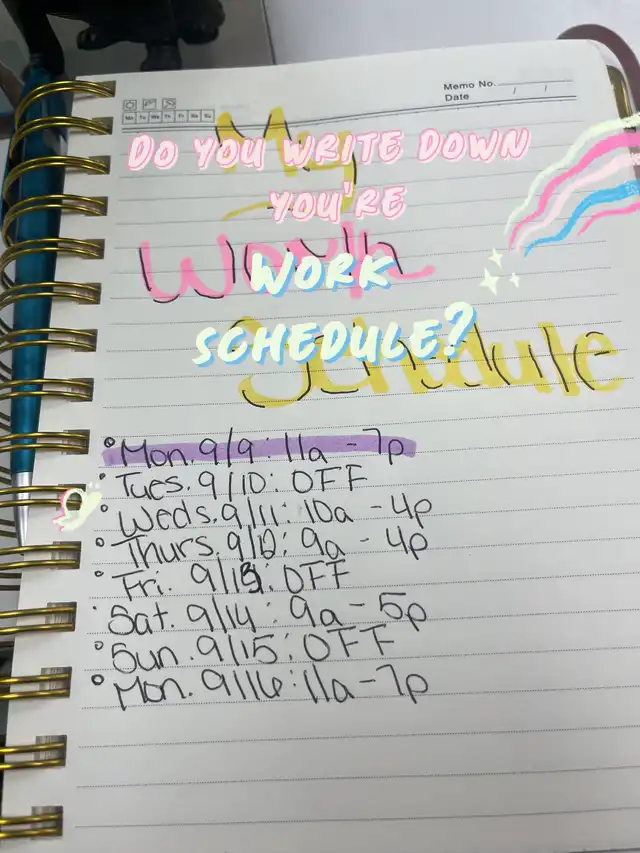 Memo No.
Date / /
Mo Tu We Th Fr Sa Su
My
DO YOU WRITE DOWN
YOU'RE
Work
WORK
SCHEDULE?
Schedule
Mon. 9/9: 11a - 7p
Tues. 9/10: OFF
Weds. 9/11: 10a - 4p
Thurs. 9/12: 9a - 4p
Fri. 9/13: OFF
Sat. 9/14: 9a - 5p
Sun. 9/15: OFF
Mon. 9/16: 11a - 7p